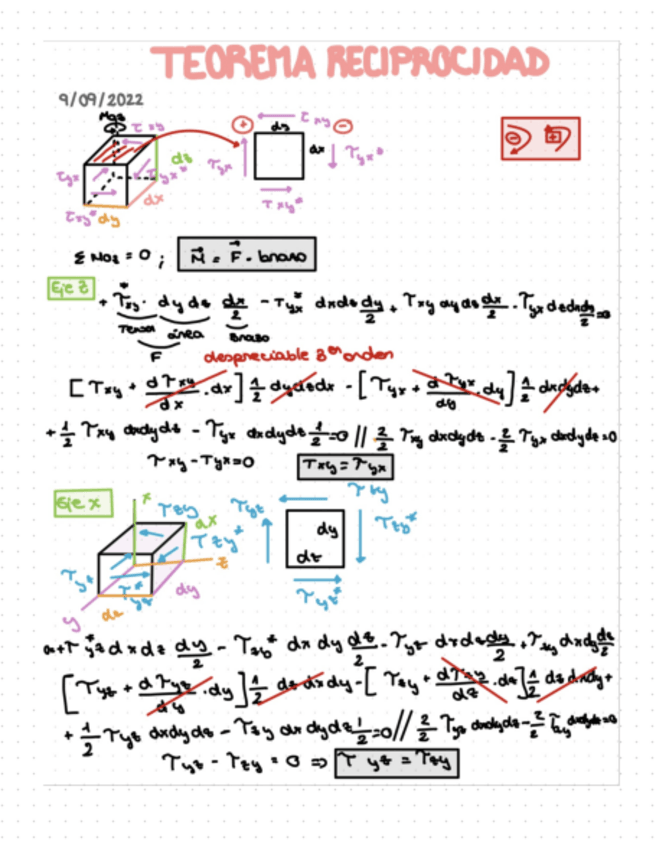 TEOREMA RECIPROCIDAD
9/09/2022
Moz
τxy
τyx
τyx*
dz
dx
τxy*
dy
+
τxy
-
dy
τyx
dx
τyx*
τxy*
Σ Moz = 0 ; M = F · brazo
Eje z
+ τxy* · dy dz dx/2 - τyx* dxdz dy/2 + τxy dy dz dx/2 - τyx dzdxdy/2 = 0
Tensor área Brazo
F
despreciable 3er orden
[τxy + dτxy/dx · dx] 1/2 dydzdx - [τyx + dτyx/dy · dy] 1/2 dxdydz +
+ 1/2 τxy dxdydz - τyx dxdydz 1/2 = 0 // 2/2 τxy dxdydz - 2/2 τyx dxdydz = 0
τxy - τyx = 0 τxy = τyx
Eje x
x
τzy
dx
τzy*
z
τyz
τyz*
dy
y
dz
τzy
τyz
dy
dz
τzy*
τyz*
τyz* dxdz dy/2 - τzy* dx dy dz/2 - τyz dxdz dy/2 + τzy dxdy dz/2
[τyz + dτyz/dy · dy] 1/2 dz dxdy - [τzy + dτzy/dz · dz] 1/2 dz dxdy +
+ 1/2 τyz dxdydz - τzy dx dydz 1/2 = 0 // 2/2 τyz dxdydz - 2/2 τzy dxdydz = 0
τyz - τzy = 0 ⇒ τyz = τzy